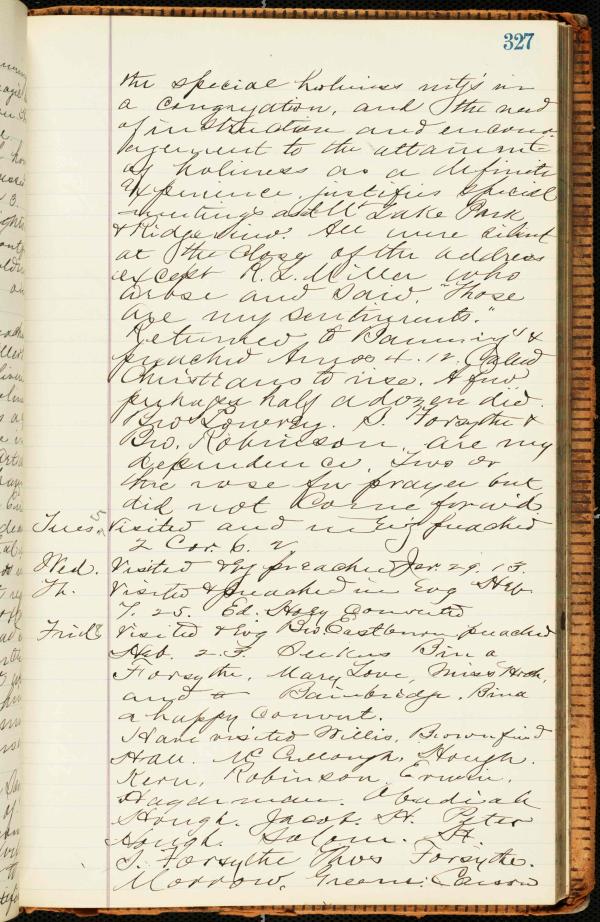 327
the special holiness mtg's in
a congregation, and the need
of instruction and encour-
agement to the attainment
of holiness as a definite
experience justifies special
meetings and Mt Lake Park
& Ridgeview. All were silent
at the close of the address
except R. L. Miller who
arose and said, "Those
are my sentiments."
Returned to &
preached Amos 4.12. Called
Christians to rise. A few
perhaps half a dozen did.
Bro S. Forsythe &
Bro. Robinson, are my
dependence. Two or
three rose for prayer but
did not come forw'd.
Tues 5 Visited and in Ev'g preached
2 Cor. 6. 2
Wed. Visited & Ev'g preached Jer. 29. 13.
Th. Visited & preached in Evg Heb.
7. 25. Ed. Hoey converted
Frid 8 Visited & Evg Bro Eastburn preached
Heb. 2. 3. Seekers Bina
Forsythe, Mary Love, Miss
and Bainbridge. Bina
a happy convert.
Have visited Willis, Brownfield
Hall. McCullough. Hough.
Kern, Robinson, Erwin,
Hagerman. Obadiah
Hough. Jacob. H. Peter
Hough. Solom. H.
S. Forsythe Thos Forsythe.
Morrow, Greene. Carson